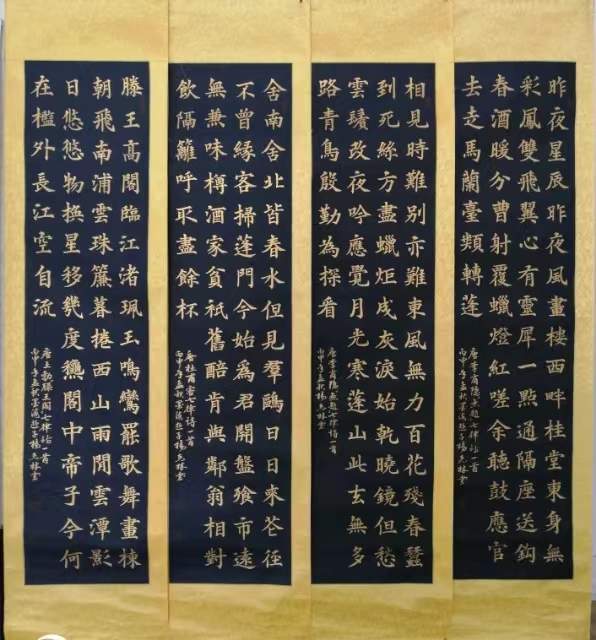 昨夜星辰昨夜風畫樓西畔桂堂東身無
彩鳳雙飛翼心有靈犀一點通隔座送鈎
春酒暖分曹射覆蠟燈紅嗟余聽鼓應官
去走馬蘭臺類轉蓬
唐李商隱無題七律詩一首
丙申年孟秋
相見時難別亦難東風無力百花殘春蠶
到死絲方盡蠟炬成灰淚始乾曉鏡但愁
雲鬢改夜吟應覺月光寒蓬山此去無多
路青鳥殷勤為探看
唐李商隱無題七律詩一首
丙申年孟秋
舍南舍北皆春水但見羣鷗日日來花徑
不曾緣客掃蓬門今始為君開盤飧市遠
無兼味樽酒家貧衹舊醅肯與鄰翁相對
飲隔籬呼取盡餘杯
唐杜甫客至七律詩一首
丙申年孟秋
滕王高閣臨江渚珮玉鳴鸞罷歌舞畫棟
朝飛南浦雲珠簾暮捲西山雨閒雲潭影
日悠悠物換星移幾度龝閣中帝子今何
在檻外長江空自流
唐王勃滕王閣七律詩一首
丙申年孟秋